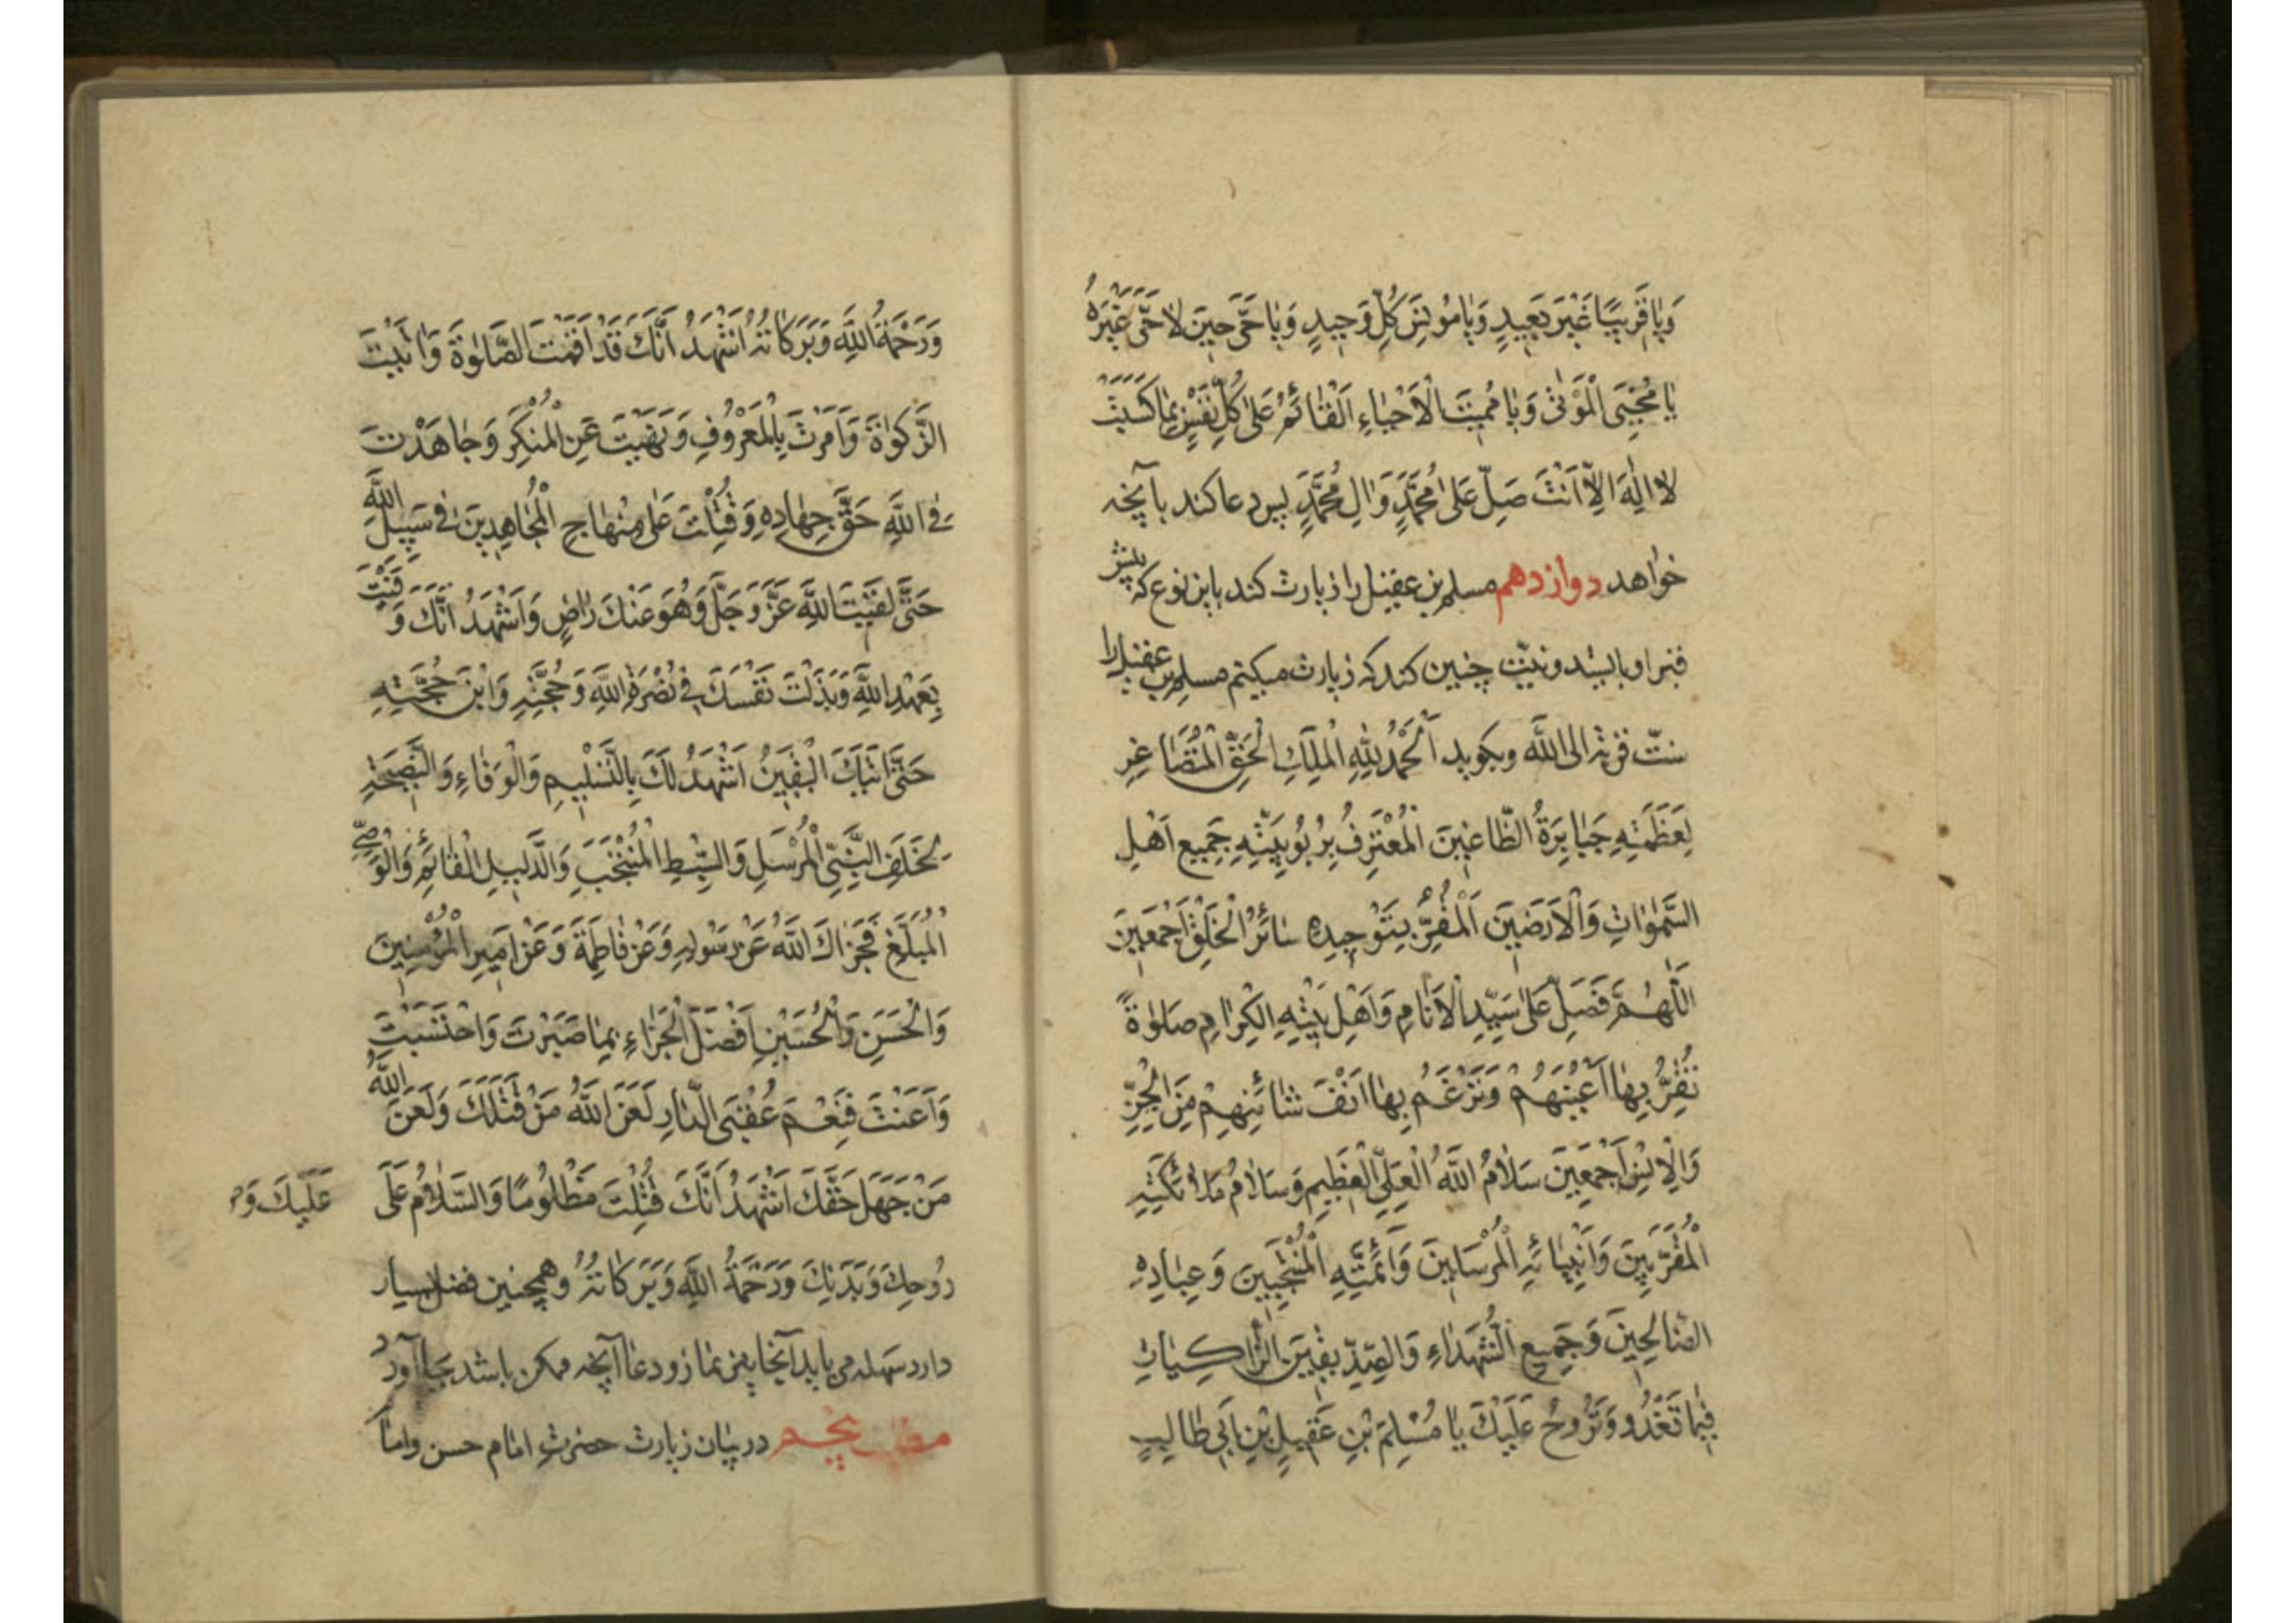 وَيٰا قَرِيبًا غَيْرَ بَعِيدٍ وَيٰا مُونِسَ كُلِّ وَحِيدٍ وَيٰا حَىُّ حِينَ لاٰ حَىَّ غَيْرُهُ
يٰا مُحْيِىَ الْمَوْتىٰ وَيٰا مُمِيتَ الْاَحْيٰاءِ اَلْقٰائِمُ عَلىٰ كُلِّ نَفْسٍ بِمٰا كَسَبَتْ
لاٰ اِلٰهَ اِلاّٰ اَنْتَ صَلِّ عَلىٰ مُحَمَّدٍ وَاٰلِ مُحَمَّدٍ پس دعا كند بآنچه
خواهد دوازدهم مسلم بن عقيل را زيارت كند باين نوع كه پيش
قبر او بايستد و نيّت چنين كند كه زيارت ميكنم مسلم بن عقيل را
سنّت قربة الى اللّه وبگويد اَلْحَمْدُ لِلّٰهِ الْمَلِكِ الْحَقِّ الْمُتَصٰاغِرِ
لِعَظَمَتِهِ جَبٰابِرَةُ الطّٰاغِينَ الْمُعْتَرِفُ بِرُبُوبِيَّتِهِ جَمِيع اَهْلِ
السَّمٰوٰاتِ وَالْاَرَضِينَ اَلْمُقِرُّ بِتَوْحِيدِهِ سٰائِرُ الْخَلْقِ اَجْمَعِينَ
اَللّٰهُمَّ فَصَلِّ عَلىٰ سَيِّدِ الْاَنٰامِ وَاَهْلِ بَيْتِهِ الْكِرٰامِ صَلوٰةً
تُقِرُّ بِهٰا اَعْيُنَهُمْ وَتُرْغَمُ بِهٰا اَنْفَ شٰانِئِهِمْ مِنَ الْجِنِّ
وَالْاِنْسِ اَجْمَعِينَ سَلاٰمُ اللّٰهِ الْعَلِىِّ الْعَظِيمِ وَسَلاٰمُ مَلاٰئِكَتِهِ
الْمُقَرَّبِينَ وَاَنْبِيٰائِهِ الْمُرْسَلِينَ وَاَئِمَّتِهِ الْمُنْتَجَبِينَ وَعِبٰادِهِ
الصّٰالِحِينَ وَجَمِيعِ الشُّهَدٰاءِ وَالصِّدِّيقِينَ الزّٰاكِيٰاتِ
فِيمٰا تَغْدُو وَتَرُوحُ عَلَيْكَ يٰا مُسْلِمَ بْنِ عَقِيلِ بْنِ اَبِى طٰالِبٍ
وَرَحْمَةُ اللّٰهِ وَبَرَكٰاتُهُ اَشْهَدُ اَنَّكَ قَدْ اَقَمْتَ الصَّلوٰةَ وَاٰتَيْتَ
الزَّكوٰةَ وَاَمَرْتَ بِالْمَعْرُوفِ وَنَهَيْتَ عَنِ الْمُنْكَرِ وَجٰاهَدْتَ
فِى اللّٰهِ حَقَّ جِهٰادِهِ وَقُتِلْتَ عَلىٰ مِنْهٰاجِ الْمُجٰاهِدِينَ فِى سَبِيلِ اللّٰهِ
حَتّٰى لَقِيتَ اللّٰهَ عَزَّ وَجَلَّ وَهُوَ عَنْكَ رٰاضٍ وَاَشْهَدُ اَنَّكَ وَفَيْتَ
بِعَهْدِ اللّٰهِ وَبَذَلْتَ نَفْسَكَ فِى نُصْرَةِ اللّٰهِ وَحُجَّتِهِ وَابْنَ حُجَّتِهِ
حَتّٰى اَتٰيكَ الْيَقِينُ اَشْهَدُ لَكَ بِالتَّسْلِيمِ وَالْوَفٰاءِ وَالنَّصِيحَةِ
لِخَلَفِ النَّبِىِّ الْمُرْسَلِ وَالسِّبْطِ الْمُنْتَجَبِ وَالدَّلِيلِ الْقٰائِمِ وَالْوَصِىِّ
الْمُبَلِّغِ فَجَزٰاكَ اللّٰهُ عَنْ رَسُولِهِ وَعَنْ فٰاطِمَةَ وَعَنْ اَمِيرِ الْمُؤْمِنِينَ
وَالْحَسَنِ وَالْحُسَيْنِ اَفْضَلَ الْجَزٰاءِ بِمٰا صَبَرْتَ وَاحْتَسَبْتَ
وَاَعَنْتَ فَنِعْمَ عُقْبَى الدّٰارِ لَعَنَ اللّٰهُ مَنْ قَتَلَكَ وَلَعَنَ اللّٰهُ
مَنْ جَهِلَ حَقَّكَ اَشْهَدُ اَنَّكَ قُتِلْتَ مَظْلُومًا وَالسَّلاٰمُ عَلَى
عَلَيْكَ وَ
رُوحِكَ وَبَدَنِكَ وَرَحْمَةُ اللّٰهِ وَبَرَكٰاتُهُ وهمچنين فضل بسيار
دارد سهله مى بايد آنجا نيز نماز و دعا آنچه ممكن باشد بجا آورد
مطلب پنجم در بيان زيارت حضرت امام حسن واما